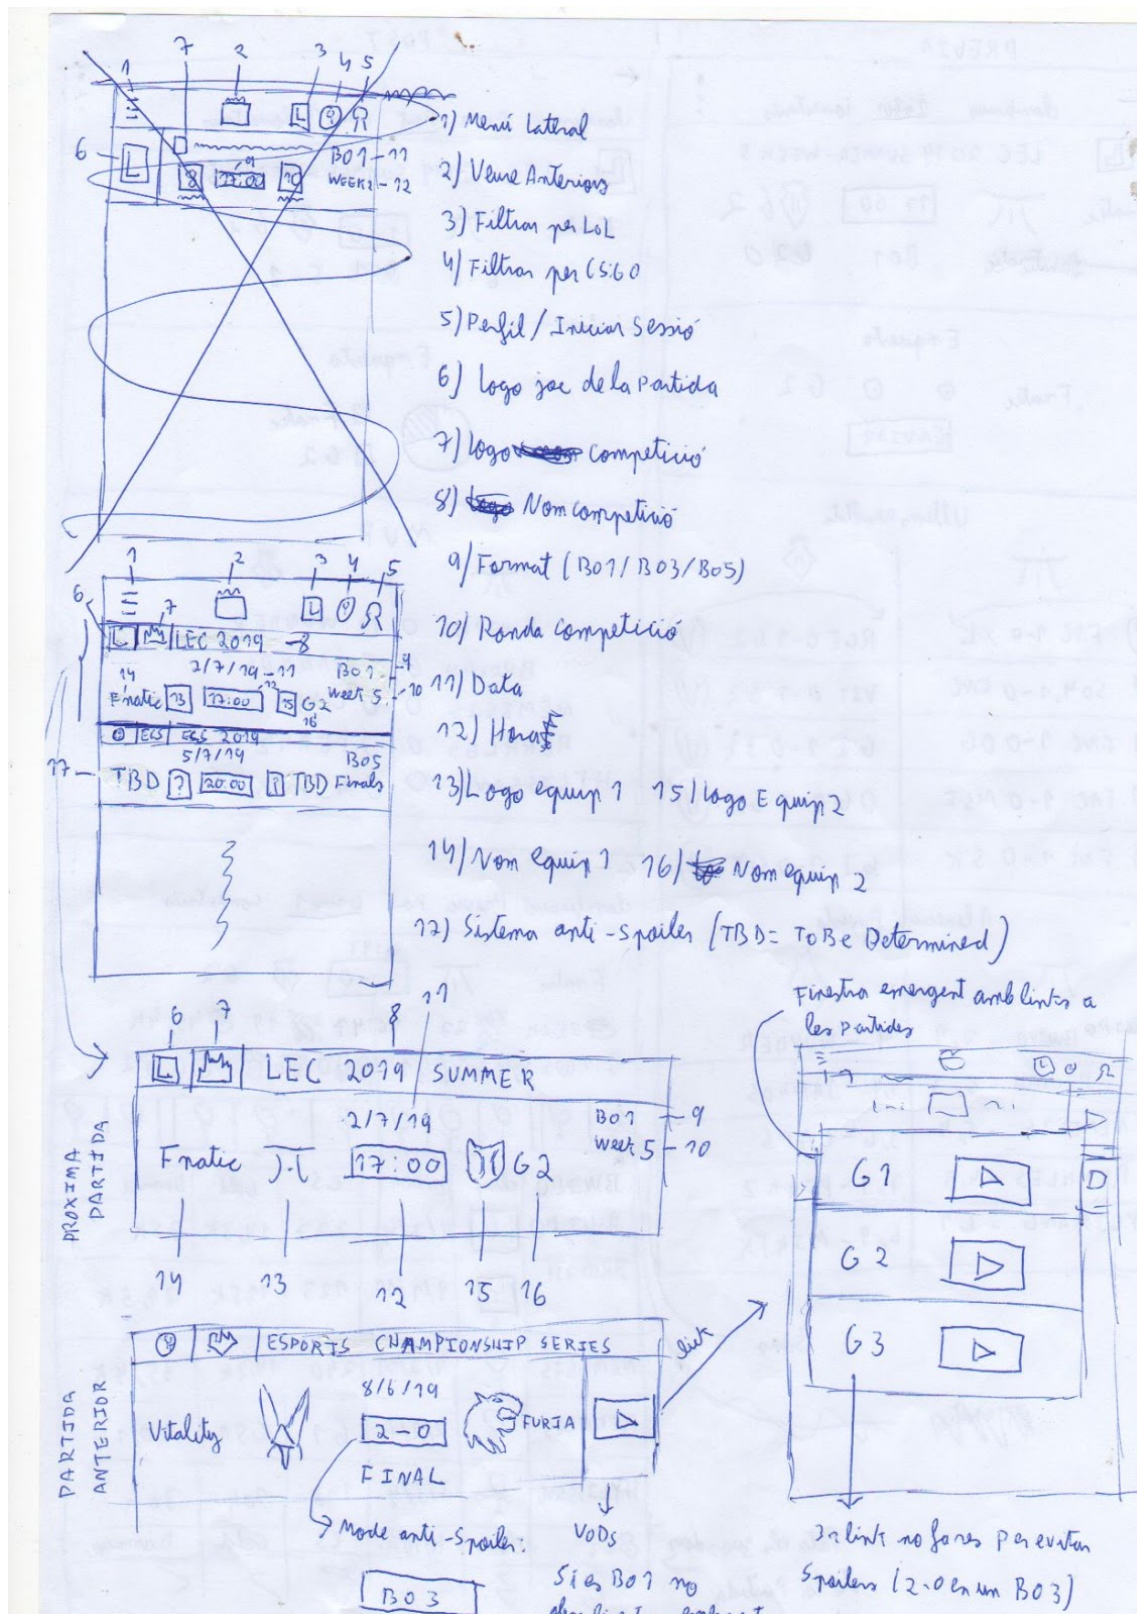 7 2 3 4 5
1
6
L
BO1-11
8 17:00 10 WEEK2-12
9
1) Menú Lateral
2) Veure Anteriors
3) Filtrar per LoL
4) Filtrar per CS:GO
5) Perfil / Iniciar Sessió
6) Logo joc de la Partida
7) Logo Competició
8) Nom competició
9) Format (BO1/BO3/BO5)
10) Ronda competició
11) Data
12) Hora
13) Logo equip 1 15) Logo Equip 2
14) Nom equip 1 16) Nom equip 2
17) Sistema anti-Spoilers (TBD = To Be Determined)
1 2 3 4 5
6
7
L LEC 2019 -8
2/7/19-11 BO1 9
14 12
Fnatic 13 17:00 15 G2 Week 5 10
16
ECS ECS 2019
5/7/19 BO5
17- TBD ? 20:00 ? TBD Finals
PROXIMA PARTIDA
6 7 8 11
L LEC 2019 SUMMER
2/7/19 BO1 - 9
Week 5 - 10
Fnatic 17:00 G2
14 13 12 15 16
PARTIDA ANTERIOR
ESPORTS CHAMPIONSHIP SERIES
8/6/19
Vitality 2-0 FURIA
FINAL
Mode anti-Spoiler:
BO3
VODs
Si es BO1 no
link
Finestra emergent amb links a
les Partides
G1
G2
G3
3r link no fa res per evitar
Spoilers (2-0 en un BO3)